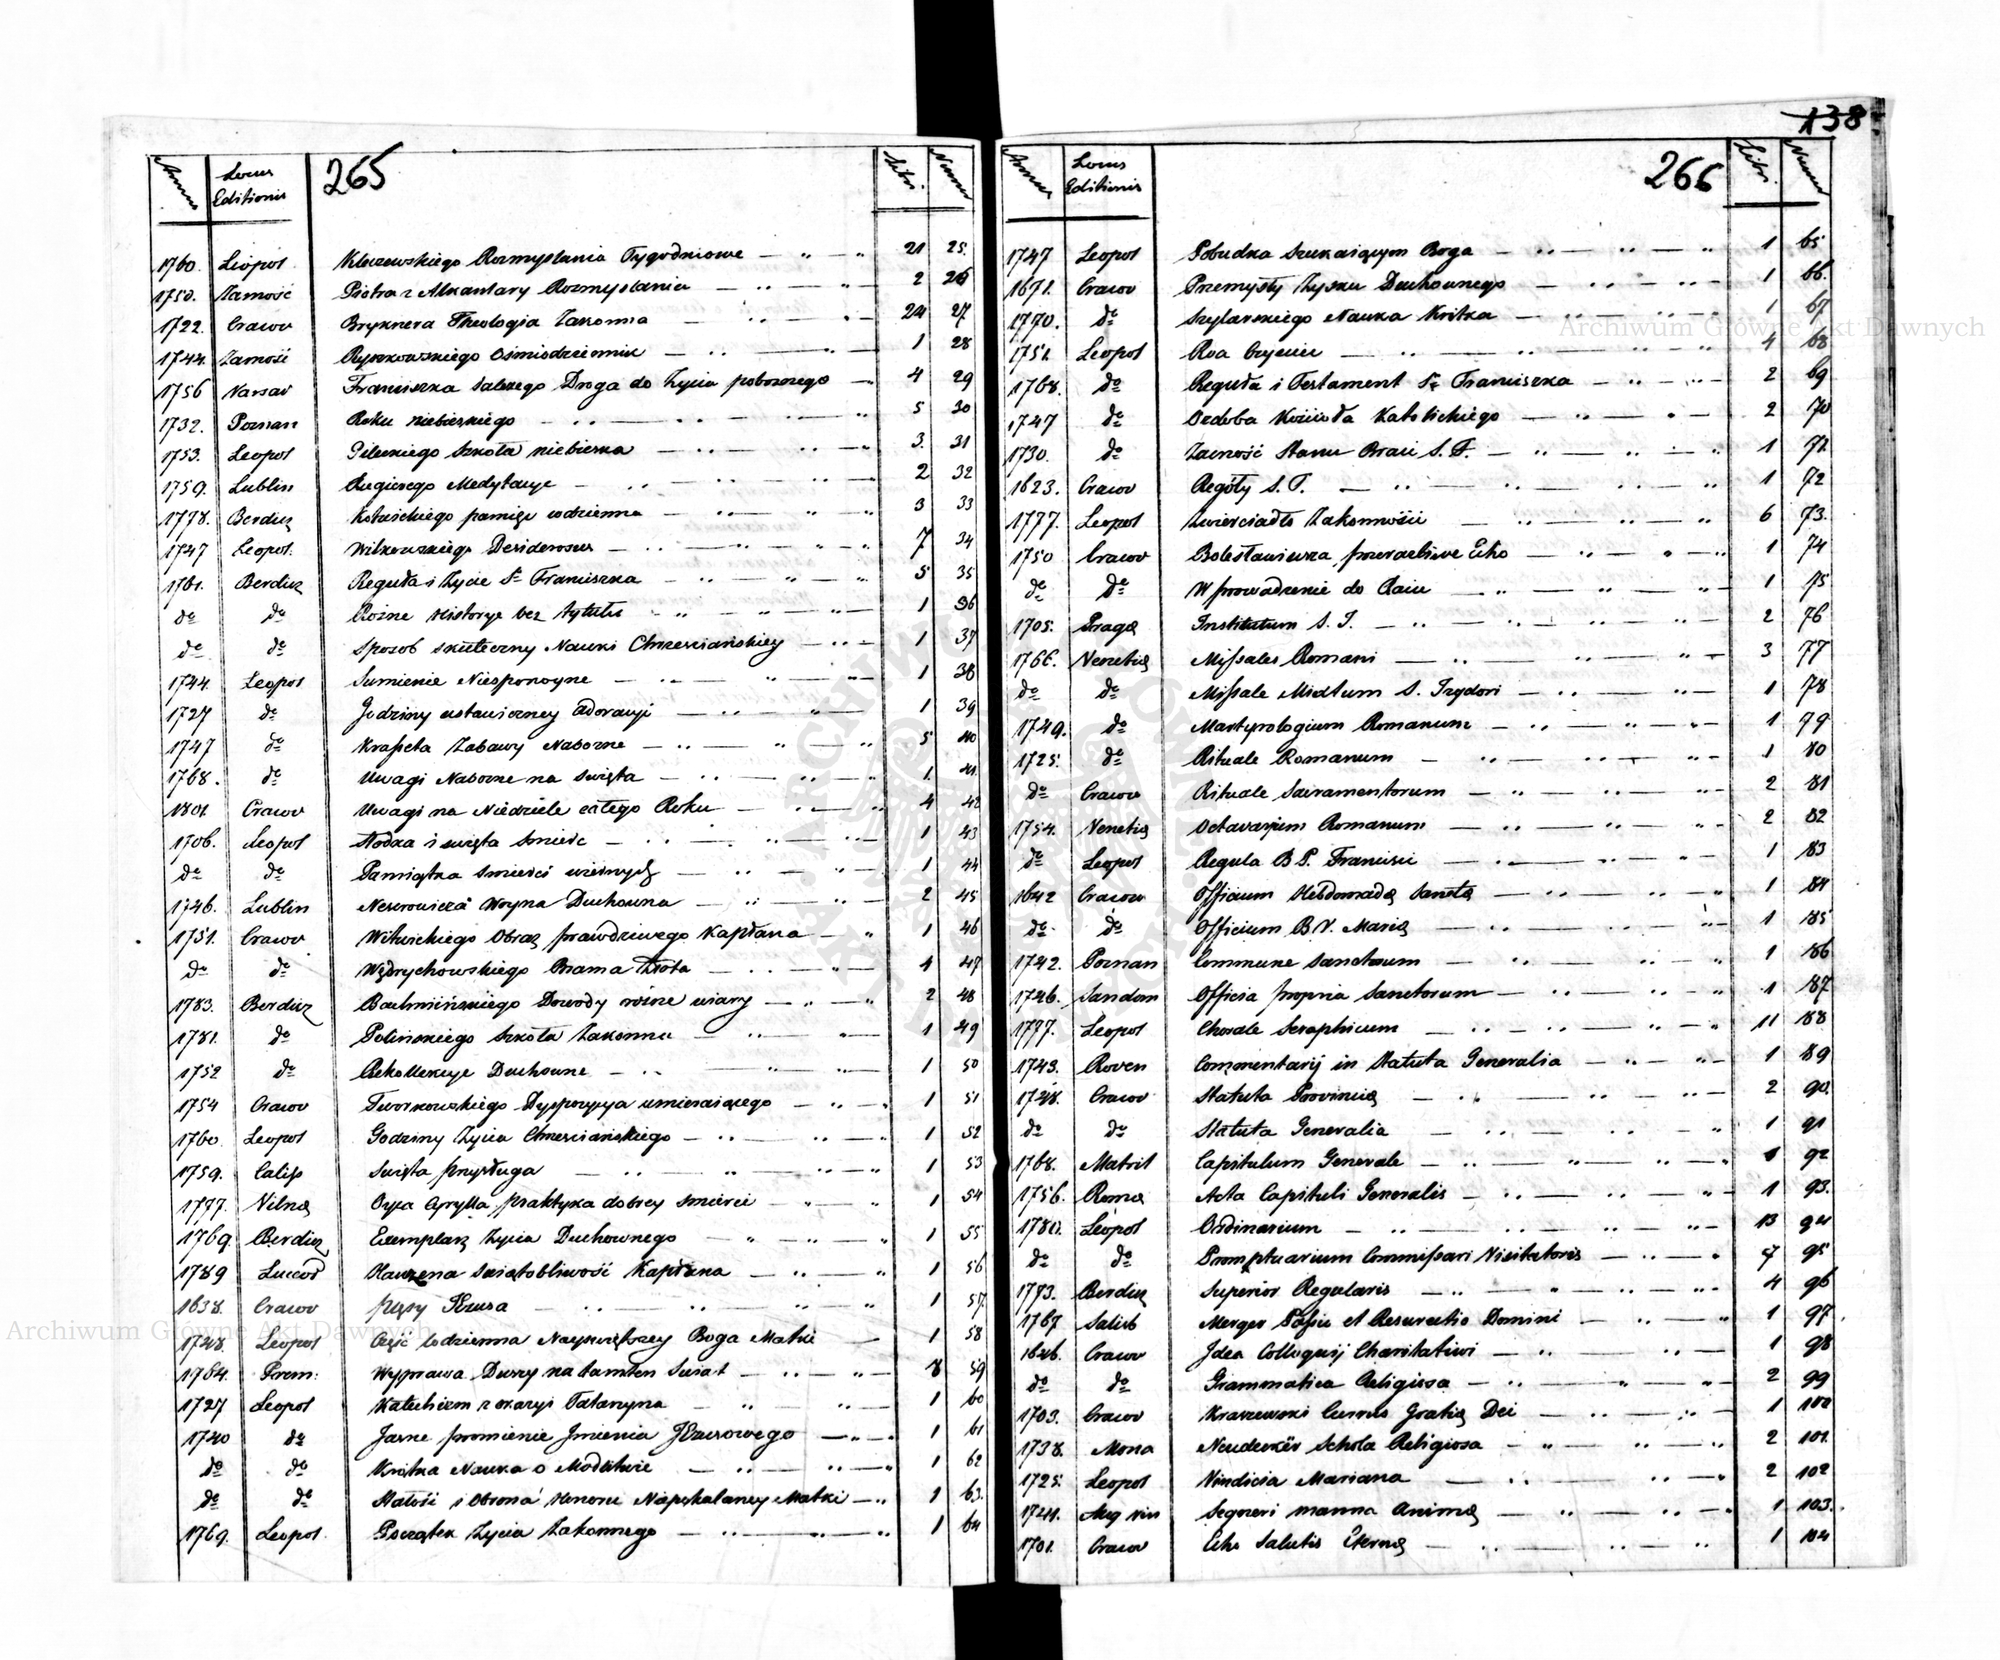 138
Annus Locus Editionis 265 Libr. Numer
1760. Leopol. Kleczewskiego Rozmyslania Tygodniowe 21 25.
1750. Zamość Piotra z Alkantary Rozmyslania 2 26
1722. Cracov Bryknera Theologia Zakonna 24 27
1744. Zamość Ryszkowskiego Ośmiodziennik 1 28
1756 Varsav Franciszka Salezego Droga do Życia pobożnego 4 29
1732. Poznan Roku niebieskiego 5 30
1753. Leopol Pileckiego Szkoła niebieska 3. 31
1759. Lublin Rugierego Medytacye 2 32
1778. Berdicz Kotucickiego pamięć codzienna 3 33
1747 Leopol. Witkowskiego Desiderosus 7 34
1761. Berdicz Reguła i Życie S. Franciszka 5 35
do do Rożne Historye bez tytułu 1 36
do do Sposob skuteczny Nauki Chrzesciańskiey 1 37
1744. Leopol Sumienie Niespokoyne 1 38
1727 do Godziny ustawiczney Adoracyi 1 39
1747 do Krasseta Zabawy Nabożne 5 40
1768. do Uwagi Nabożne na Swięta 1. 41.
1801. Cracov Uwagi na Niedziele całego Roku 4 42
1706. Leopol Słodka i swięta Smierć 1 43
do do Pamiątka Smierci wiecznych 1 44
1746. Lublin Nescrowicka Woyna Duchowna 2 45
1751. Cracov Witwickiego Obraz prawdziwego Kapłana 1 46
do do Wędrychowskiego Brama Złota 4 47
1783. Berdicz Bachmińskiego Dowody rożne wiary 2 48
1781. do Polińskiego Szkoła Zakonna 1 49
1752 do Rekollekcye Duchowne 1 50
1754 Cracov Tworkowskiego Dyspozycya umieraiącego 1 51
1760. Leopol Godziny Życia Chrzesciańskiego 1 52
1759. Caliss Swięta przysługa 1 53
1777. Vilnæ Oyca Cyrylla praktyka dobrey Smierci 1 54
1769. Berdicz Exemplarz Życia Duchownego 1 55
1789 Luceor Hauzena Swiątobliwość Kapłana 1 56
1638. Cracov pięcy Jezusa 1 57.
1748. Leopol Cześć Codzienna Nayswiętszey Boga Matki 1 58
1764. Prem: Wyprawa Duszy na tamten Swiat 8 59
1727 Leopol Katechizm z okazyi Tatarzyna 1 60
1740 do Jasne promienie Jmienia Jezusowego 1 61
do do Krótka Nauka o Modlitwie 1 62
do do Stałość i Obrona Honoru Niepokalaney Matki 1 63.
1769. Leopol. Początek Życia Zakonnego 1 64
Annus Locus Editionis 266 Libr. Numer
1747 Leopol Pobudka szukaiącym Boga 1 65
1671. Cracov Przemysły Zysku Duchownego 1 66.
1770. do Szylarskiego Nauka Krótka 1 67
1751. Leopol Roa Życie 4 68
1768. do Reguła i Testament S. Franciszka 2 69
1747 do Ozdoba Kościoła Katolickiego 2 70
1730. do Zacność Stanu Braci S. F. 1 71.
1623. Cracov Regóły S. F. 1 72
1777. Leopol Zwierciadło Zakonności 6 73.
1750 Cracov Bolesławiusza przeraźliwe Echo 1 74
do do Wprowadzenie do Raiu 1 75
1705. Pragæ Institutum S. J. 2 76
1766. Venetiæ Missales Romani 3 77
do do Missale Mixtum S. Izydori 1 78
1749. do Martyrologium Romanum 1 79
1725. do Rituale Romanum 1 80
do Cracov Rituale Sacramentorum 2 81
1754. Venetiæ Octavarium Romanum 2 82
do Leopol Regula B. P. Francisci 1 83
1642 Cracov Officium Hebdomadæ Sanctæ 1 84
do do Officium B. V. Mariæ 1 85
1742. Poznan Commune Sanctorum 1 86
1746. Sandom Officia propria Sanctorum 1 87
1777. Leopol Chorale Seraphicum 11 88
1743. Roven Commentarij in Statuta Generalia 1 89
1748. Cracov Statuta Provinciæ 2 90.
do do Statuta Generalia 1 91
1768. Matrit Capitulum Generale 1 92
1756. Romæ Acta Capituli Generalis 1 93.
1780. Leopol Ordinarium 13 94
do do Promptuarium Commissari Visitatoris 7 95
1773. Berdicz Superior Regularis 4 96
1767 Salisb Merger Passio et Resurectio Domini 1 97.
1646. Cracov Jdea Colloquij Charitativi 1 98
do do Grammatica Religiosa 2 99
1703. Cracov Kraszewski Currus Gratiæ Dei 1 100
1738. Mona Neudecker Schola Religiosa 2 101.
1725. Leopol Vindicia Mariana 2 102
1724. Aug vin Segneri manna animæ 1 103.
1701. Cracov Echo Salutis Eternæ 1 104
Archiwum Główne Akt Dawnych
Archiwum Główne Akt Dawnych